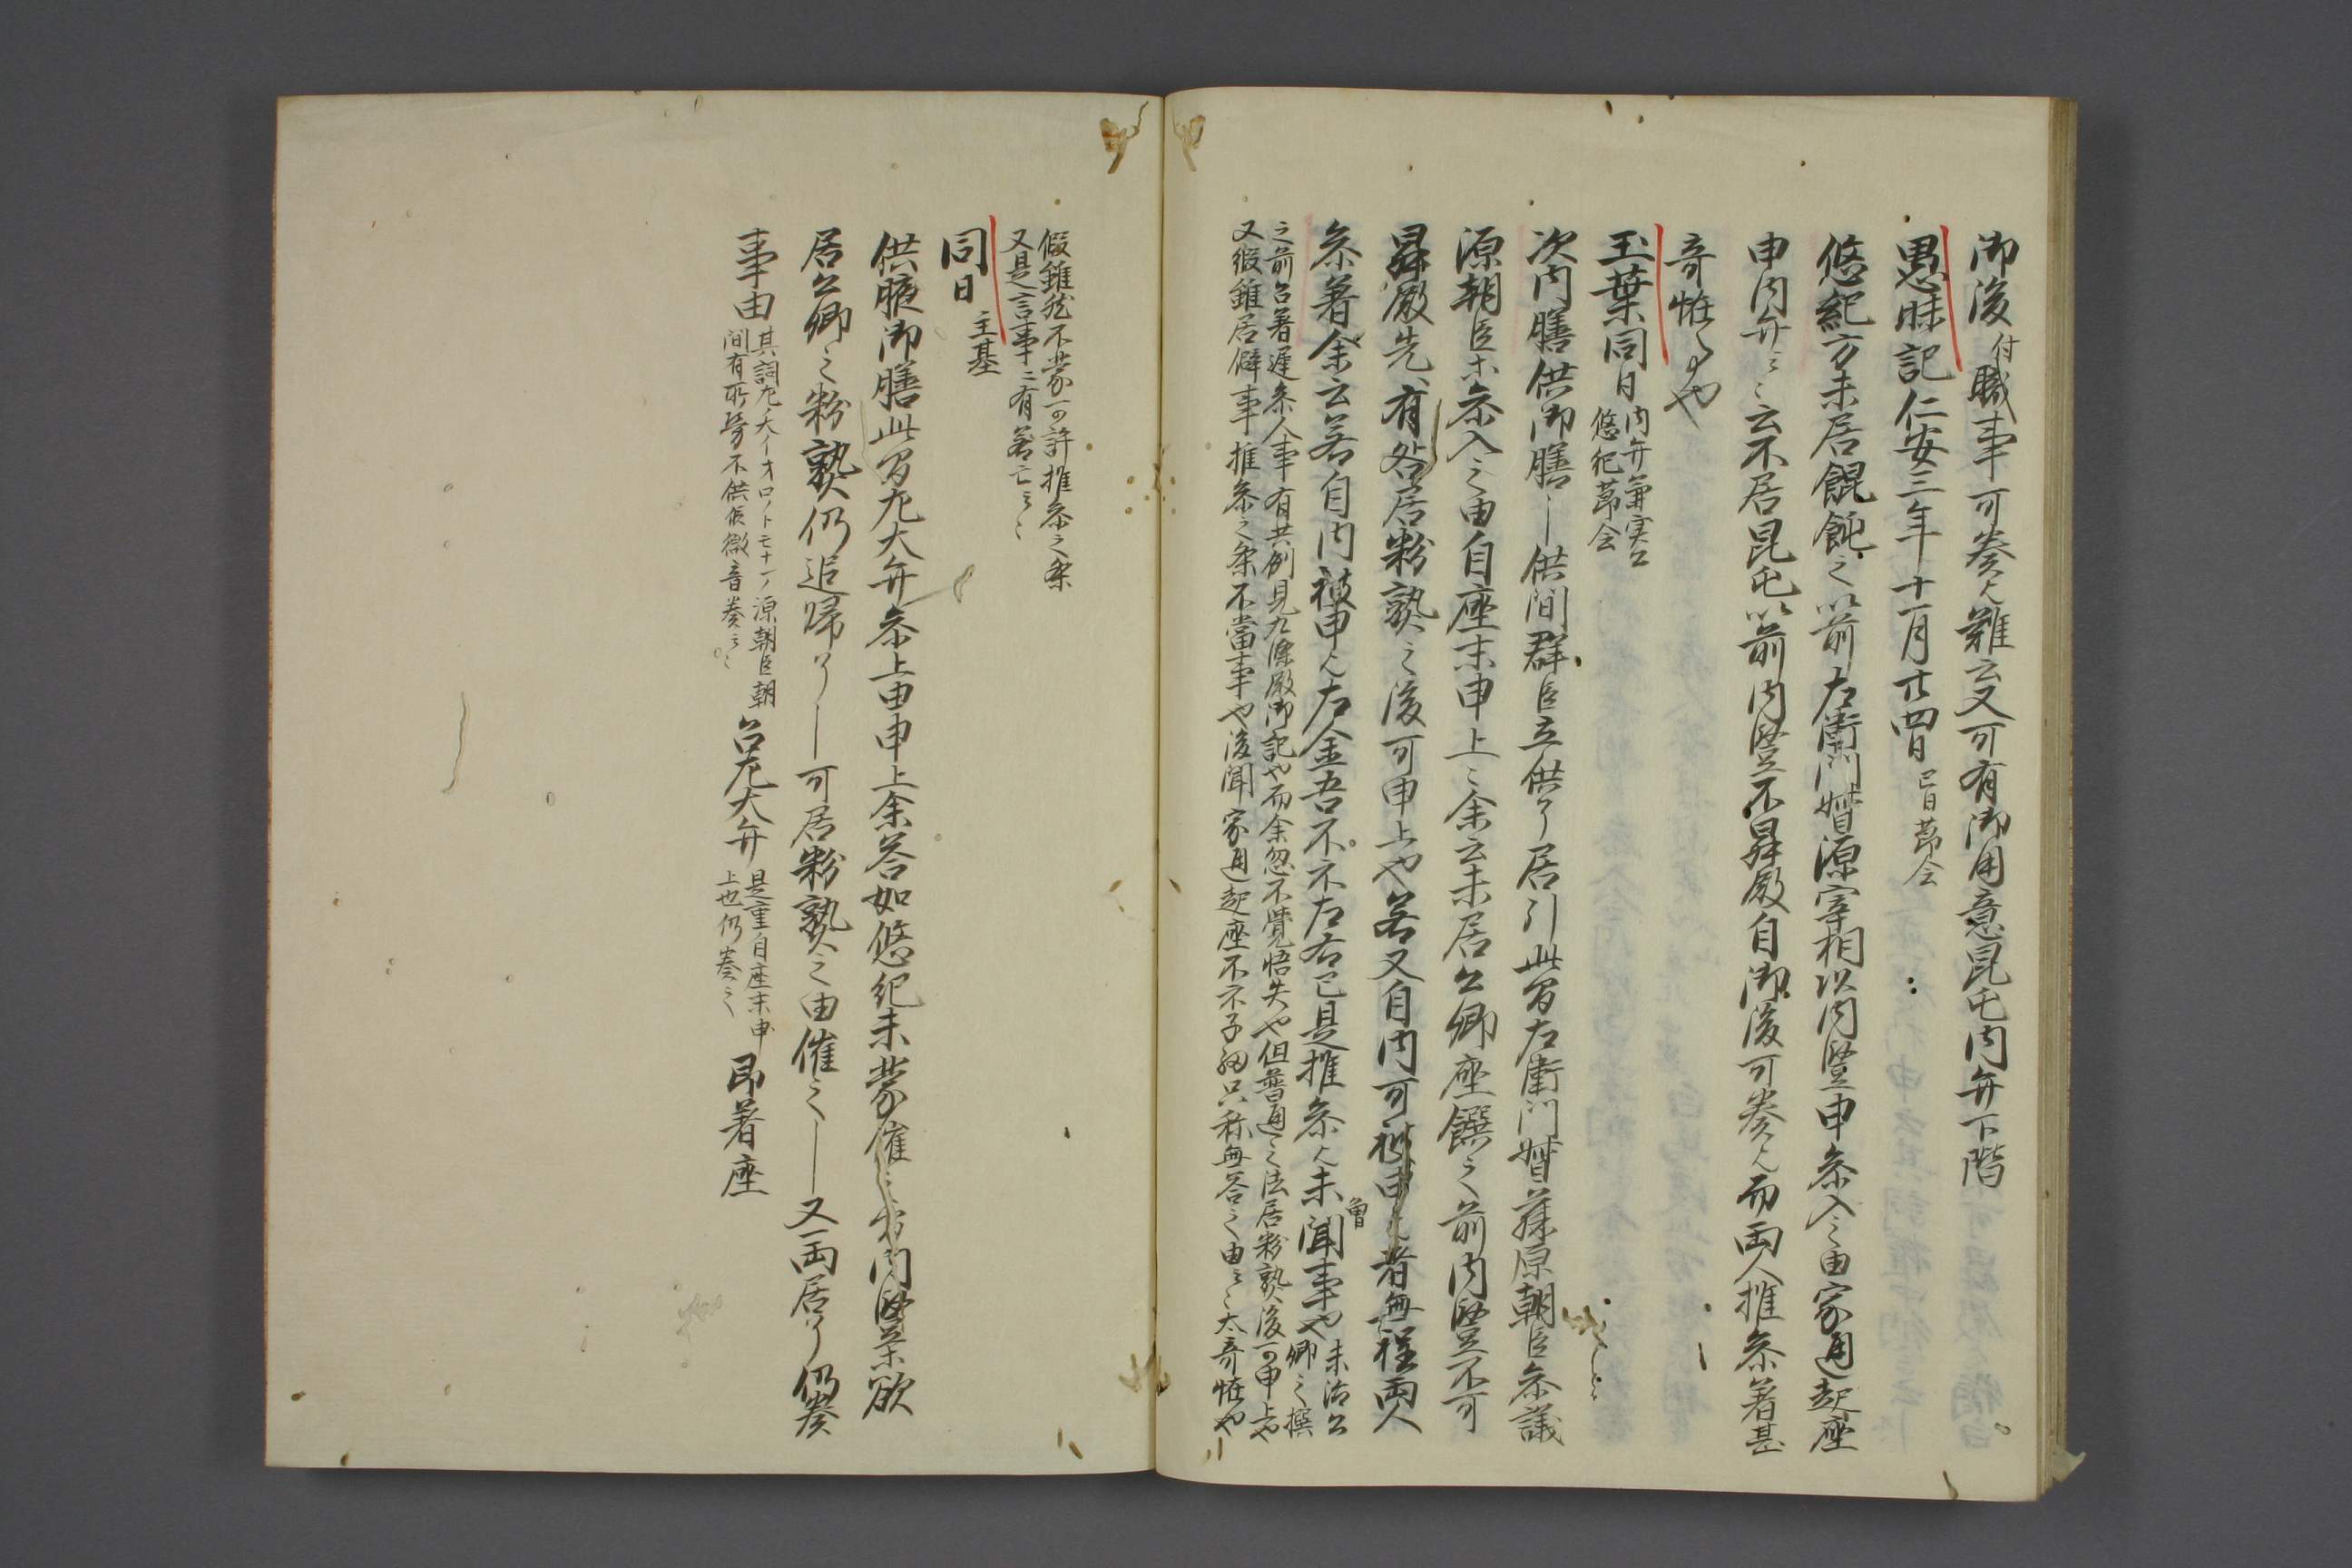 御後付職事可奏之難云又可有御用意昆屯内弁下階
愚昧記仁安三年十一月廿四日 巳日節会
悠紀方未居餛飩之以前左衛門督源宰相以内竪申参入之由家通起座
申内弁云々不居昆屯以前内竪不昇殿自御後可奏之而両人推参着甚
奇恠事也
玉葉同日 内弁兼実公
悠紀節会
次内膳供御膳―供間群臣立供了居引此間左衛門督藤原朝臣参議
源朝臣等参入之由自座末申上之余云未居公卿座饌之前内竪不可
昇殿先有咎居粉熟之後可申上也若又自内可被申之者無程両人
参着余云若自内被申之左金吾不示左右已是推参之未曽聞事也 未給公卿之撰
之前召着遅参人事有其例見九条殿御記也而余忽不覚悟失也但普通之法居粉熟後可申上也
又縦雖居僻事推参之条不当事也後聞家通起座不示子細只称無答之由云々太奇恠也
仮雖然不蒙可許推参之条
又是言事ニ有若亡云々
同日 主基
供腋御膳此間左大弁参上由申上余答如悠紀未蒙催之前内竪等欲
居公卿之粉熟仍追帰了―可居粉熟之由催之―又両居了仍奏
事由 其詞左大イオロノトモナヒノ源朝臣朝
間有所労不供候微音奏云々 召左大弁 是重自座末申
上也仍奏之 即着座